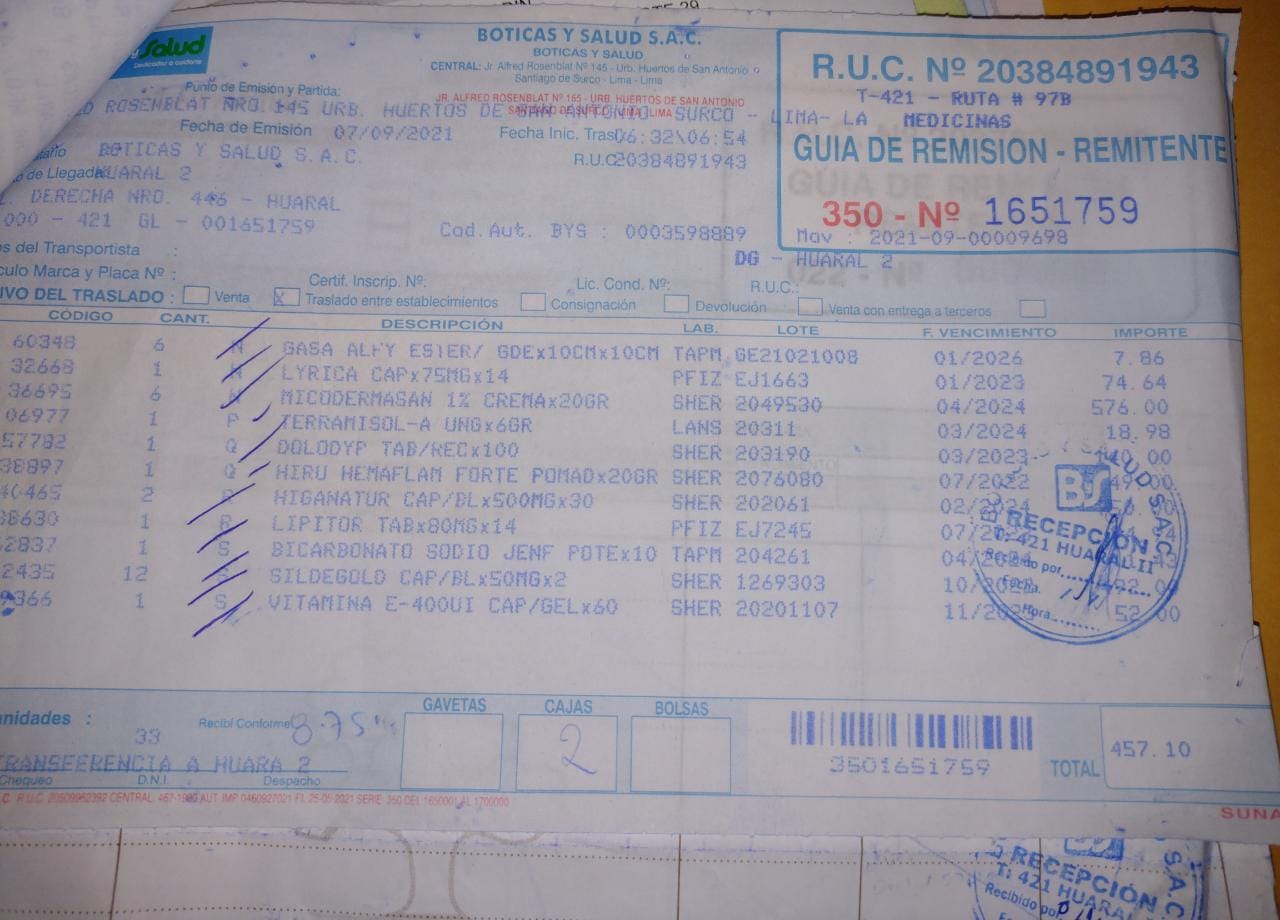 Salud
Dedicados a cuidarte
BOTICAS Y SALUD S.A.C.
BOTICAS Y SALUD
CENTRAL: Jr. Alfred Rosenblat Nº 145 - Urb. Huertos de San Antonio
Santiago de Surco - Lima - Lima
JR. ALFRED ROSENBLAT Nº 165 - URB. HUERTOS DE SAN ANTONIO
SANTIAGO DE SURCO - LIMA - LIMA
R.U.C. Nº 20384891943
T-421 - RUTA # 97B
MEDICINAS
GUIA DE REMISION - REMITENTE
350 - Nº 1651759
Mov : 2021-09-00009698
DG - HUARAL 2
Punto de Emisión y Partida:
ROSENBLAT NRO. 145 URB. HUERTOS DE SAN ANTONIO SURCO - LIMA- LA
Fecha de Emisión 07/09/2021 Fecha Inic. Tras 06:32\06:54
BOTICAS Y SALUD S.A.C. R.U.C 20384891943
de Llegada HUARAL 2
DERECHA NRO. 446 - HUARAL
000 - 421 GL - 001651759 Cod.Aut. BYS : 0003598889
os del Transportista :
culo Marca y Placa Nº : Certif. Inscrip. Nº: Lic. Cond. Nº: R.U.C.:
IVO DEL TRASLADO : Venta X Traslado entre establecimientos Consignación Devolución Venta con entrega a terceros
CÓDIGO CANT. DESCRIPCIÓN LAB. LOTE F. VENCIMIENTO IMPORTE
60348 6 N GASA ALFY ESTER/ GDEx10CMx10CM TAPM GE21021008 01/2026 7.86
32668 1 N LYRICA CAPx75MGx14 PFIZ EJ1663 01/2023 74.64
36695 6 N MICODERMASAN 1% CREMAx20GR SHER 2049530 04/2024 576.00
06977 1 P TERRAMISOL-A UNGx6GR LANS 20311 03/2024 18.98
57782 1 Q DOLODYP TAB/RECx100 SHER 203190 03/2023
38897 1 Q HIRU HEMAFLAM FORTE POMADx20GR SHER 2076080 07/2022 49.00
40465 2 R HIGANATUR CAP/BLx500MGx30 SHER 202061 02/2024
38630 1 R LIPITOR TABx80MGx14 PFIZ EJ7245
2837 1 S BICARBONATO SODIO JENF POTEx10 TAPM 204261
2435 12 S SILDEGOLD CAP/BLx50MGx2 SHER 1269303
366 1 S VITAMINA E-400UI CAP/GELx60 SHER 20201107 52.00
BS
RECEPCIÓN
T: 421 HUARAL II
Recibido por
Fecha
Hora
nidades : 33 Recibí Conforme 8.75 GAVETAS CAJAS 2 BOLSAS
3501651759
TOTAL 457.10
TRANSFERENCIA A HUARA 2
Chequeo D.N.I. Despacho
R.U.C. 20509962392 CENTRAL: 467-1980 AUT. IMP 0460927021 F.I. 25-05-2021 SERIE 350 DEL 1650001 AL 1700000
SUNA
RECEPCIÓN
T: 421 HUARAL
Recibido por